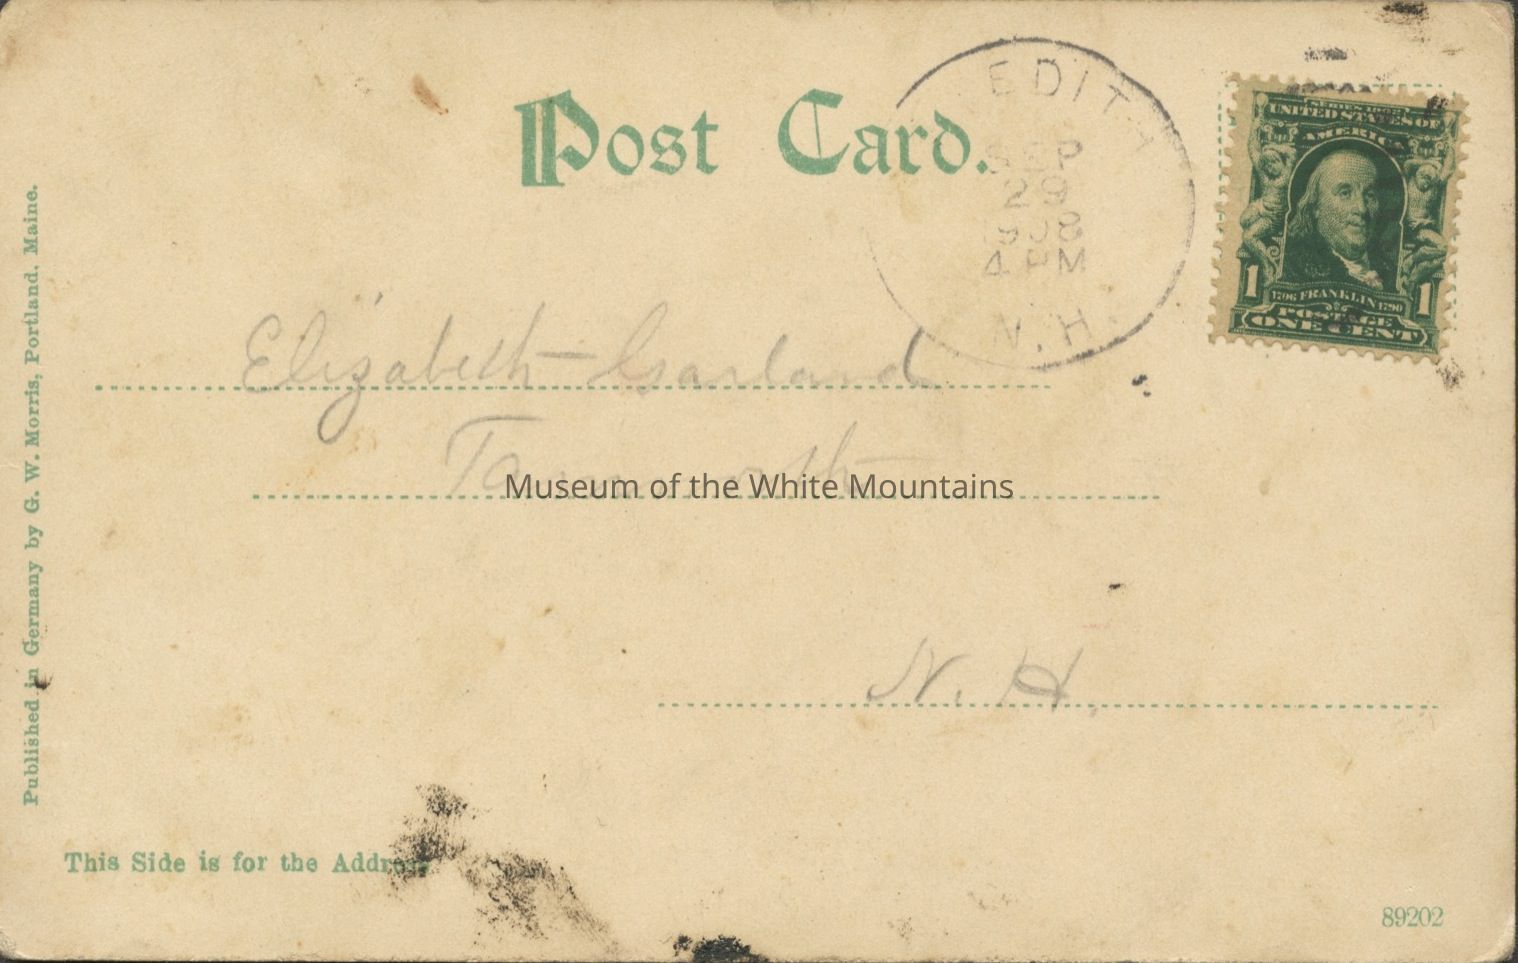 Post Card.
EDITH
SEP
29
1908
4 PM
N.H.
SERIES 1902
UNITED STATES OF
AMERICA
1 1
FRANKLIN 1790
POSTAGE
ONE CENT
Elizabeth Garland
Museum of the White Mountains
N. H.
Published in Germany by G. W. Morris, Portland, Maine.
This Side is for the Address
89202